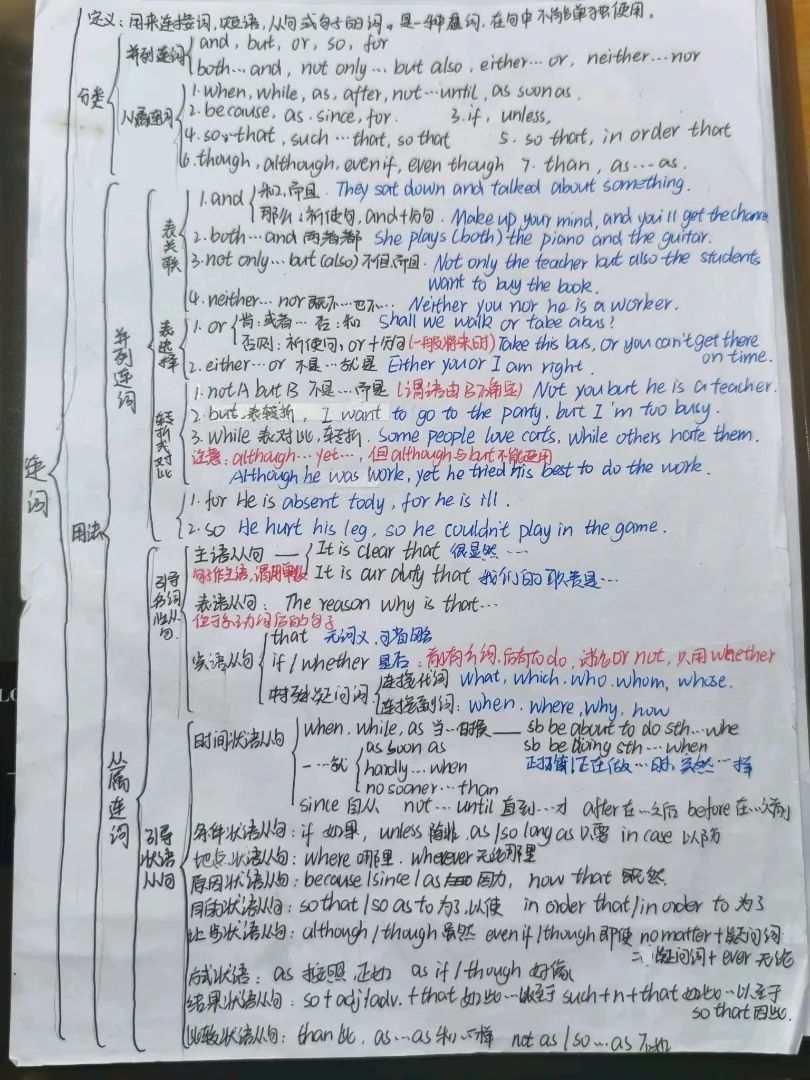 定义：用来连接词，短语，从句或句子的词。是一种虚词，在句中不能单独使用。
连词
分类
并列连词
and, but, or, so, for
both…and, not only…but also, either…or, neither…nor
从属连词
1. when, while, as, after, not…until, as soon as.
2. because, as, since, for. 3. if, unless,
4. so…that, such…that, so that 5. so that, in order that
6. though, although, even if, even though 7. than, as…as.
用法
并列连词
表关联
1. and
和,而且. They sat down and talked about something.
那么:祈使句, and+句. Make up your mind, and you'll get the chance
2. both…and 两者都 She plays (both) the piano and the guitar.
3. not only…but (also) 不但,而且. Not only the teacher but also the students
want to buy the book.
4. neither…nor 既不…也不… Neither you nor he is a worker.
表选择
1. or
肯:或者… 否:和 Shall we walk or take a bus?
否则:祈使句, or+句 (一般将来时) Take this bus, or you can't get there
on time.
2. either…or 不是…就是 Either you or I am right.
转折或对比
1. not A but B 不是…而是 (谓语由B不确定) Not you but he is a teacher.
2. but 表转折, I want to go to the party, but I'm too busy.
3. while 表对比,转折. Some people love cats, while others hate them.
注意: although…yet…, 但although与but不能连用
Although he was work, yet he tried his best to do the work.
1. for He is absent tody, for he is ill.
2. so He hurt his leg, so he couldn't play in the game.
从属连词
引导名词性从句
主语从句 — It is clear that 很显然…
句子作主语,谓用单数 It is our duty that 我们的职责是…
表语从句: The reason why is that…
位于系动词后的句子
宾语从句
that 无词义,可省略
if / whether 是否: 前有介词,后有to do, 或 or not, 只用 whether
特殊疑问词
连接代词 what, which, who, whom, whose.
连接副词: when, where, why, how
引导状语从句
时间状语从句
when, while, as 当…时候 — sb be about to do sth…whe
sb be doing sth…when
一…就
as soon as
hardly…when 正在做…时,突然…
no sooner…than
since 自从 not…until 直到…才 after 在…之后 before 在…之前
条件状语从句: if 如果, unless 除非, as/so long as 只要 in case 以防
地点状语从句: where 哪里, wherever 无论哪里
原因状语从句: because / since / as 因为, now that 既然
目的状语从句: so that / so as to 为了,以使 in order that / in order to 为了
让步状语从句: although / though 虽然 even if / though 即使 no matter + 疑问词
= 疑问词 + ever 无论
方式状语: as 按照,正如 as if / though 好像
结果状语从句: so + adj/adv. + that 如此…以至于 such+n+that 如此…以至于
so that 因此.
比较状语从句: than 比, as…as 和…一样 not as / so…as 不如